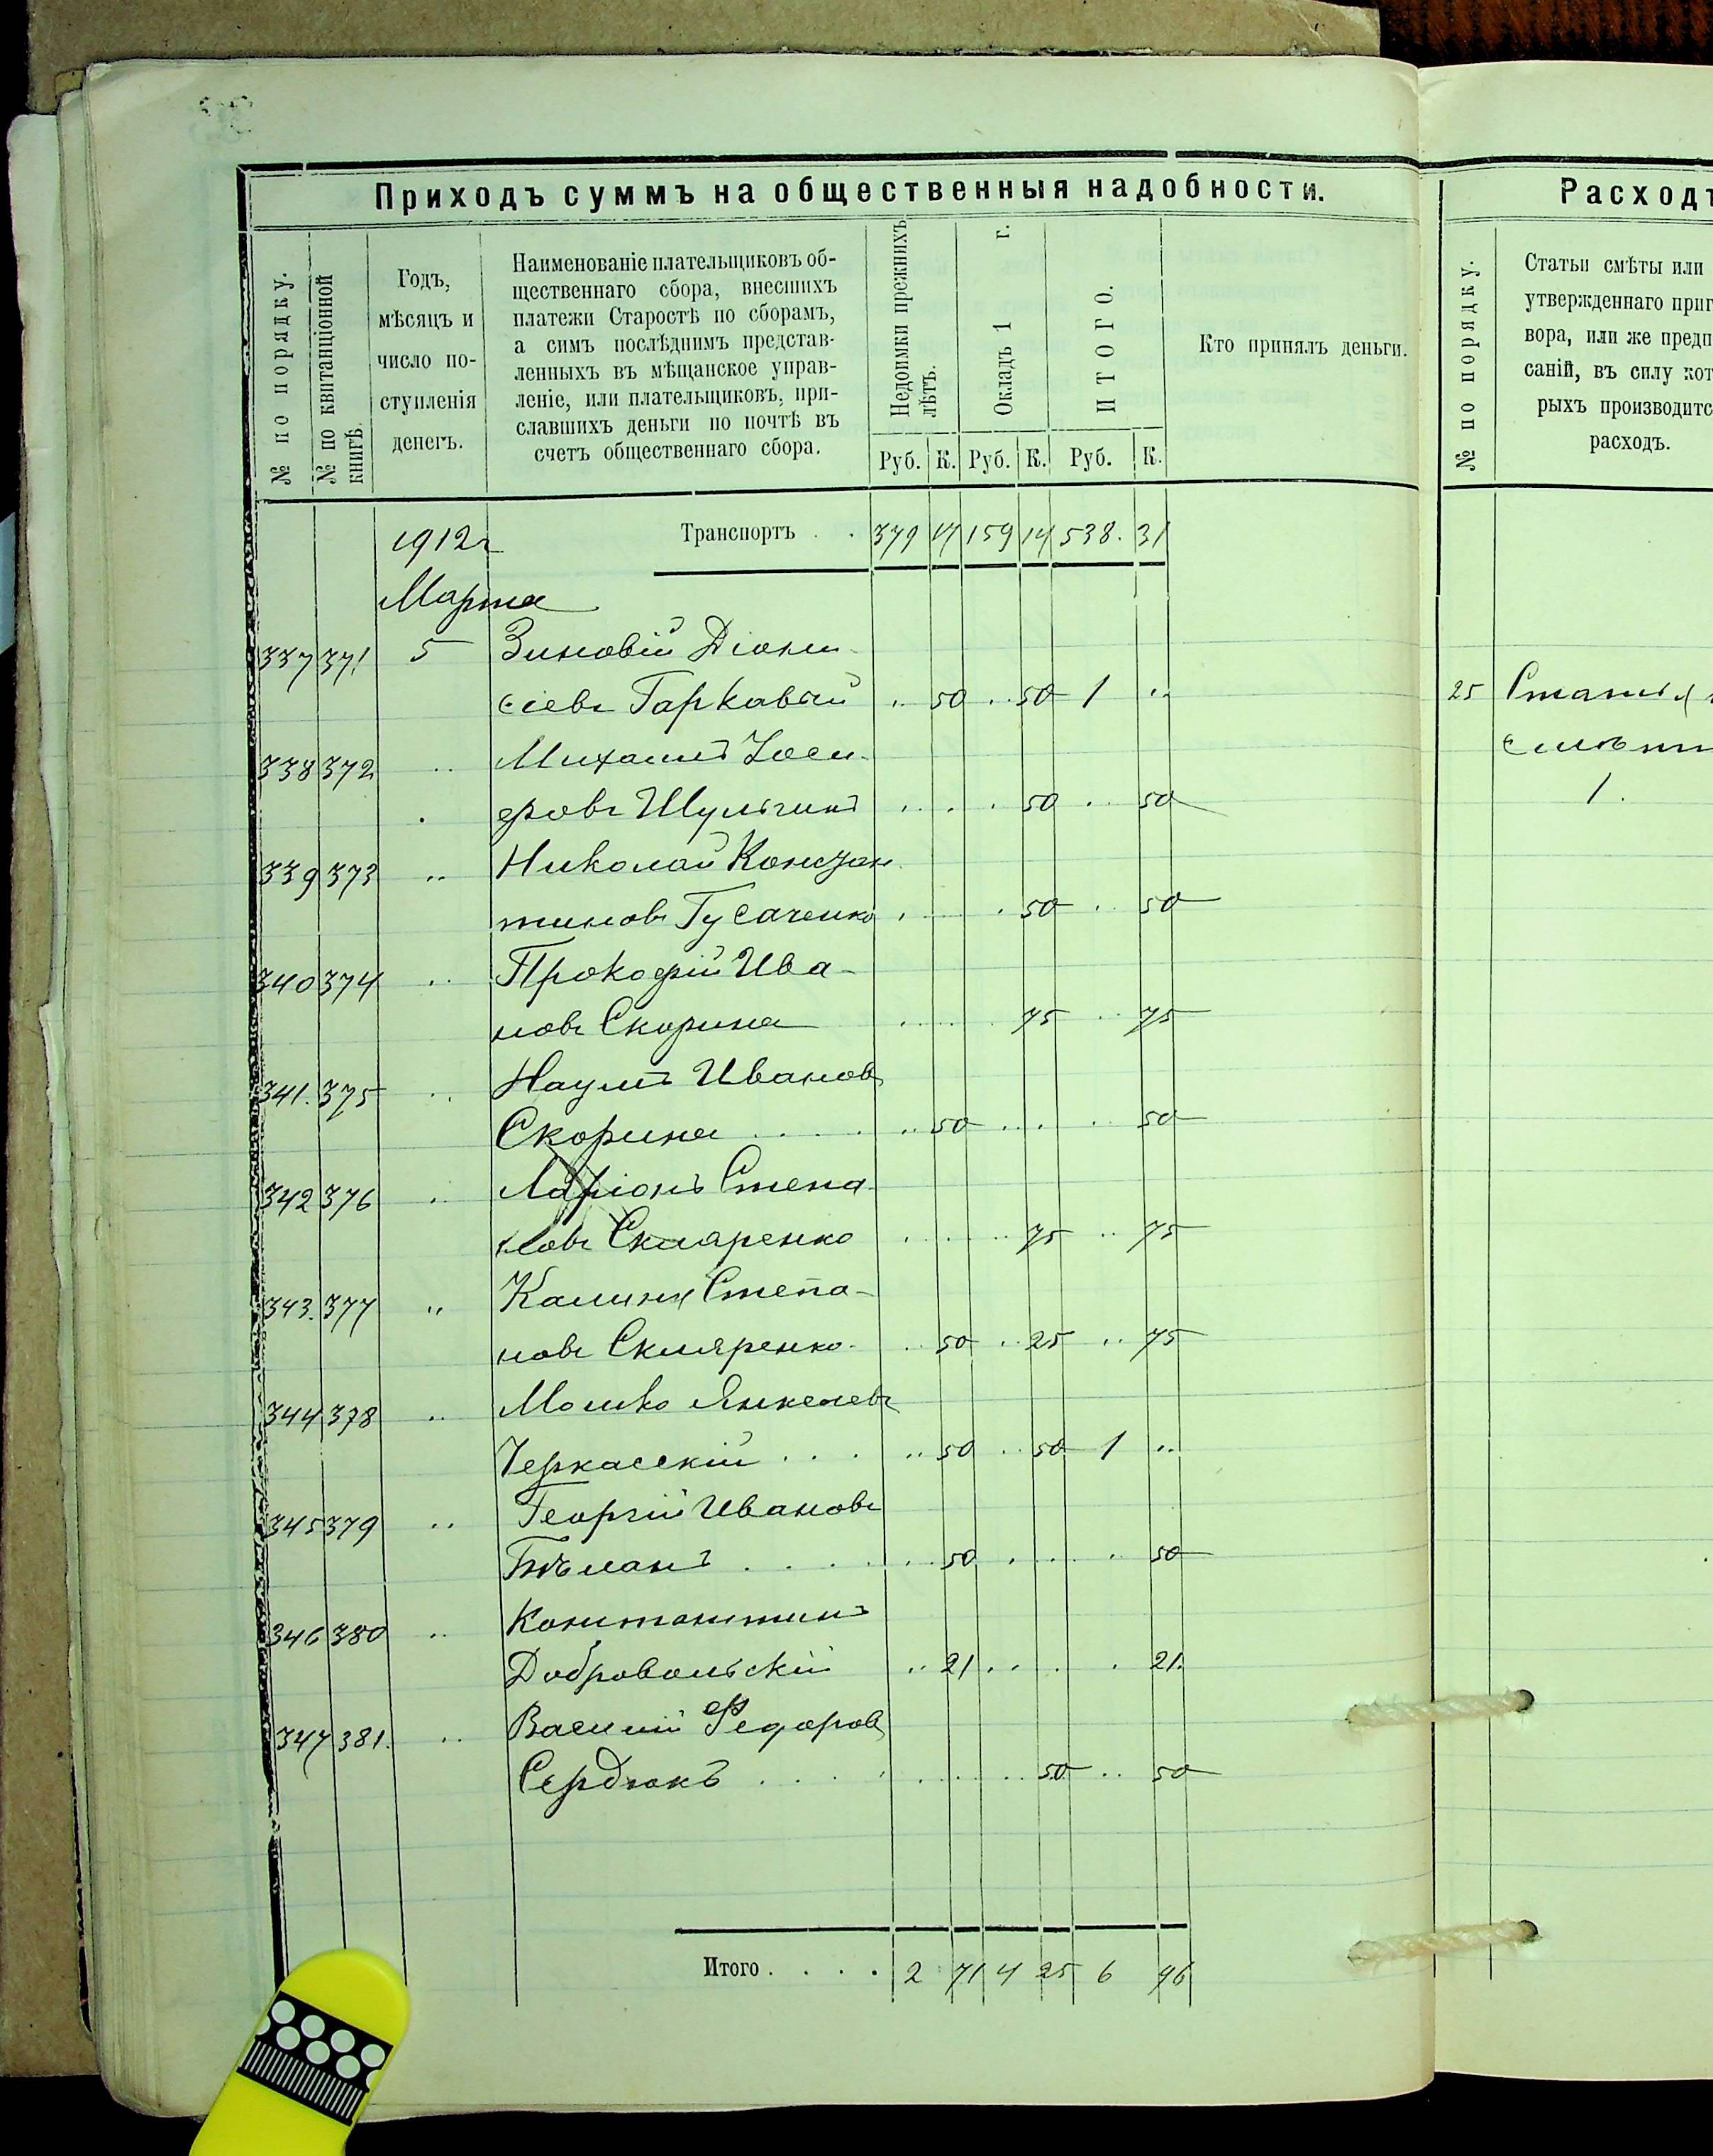 Приходъ суммъ на общественныя надобности.
№ по порядку.
№ по квитанціонной книгѣ.
Годъ,
мѣсяцъ и
число по-
ступленія
денегъ.
Наименованіе плательщиковъ об-
щественнаго сбора, внесшихъ
платежи Старостѣ по сборамъ,
а симъ послѣднимъ представ-
ленныхъ въ мѣщанское управ-
леніе, или плательщиковъ, при-
славшихъ деньги по почтѣ въ
счетъ общественнаго сбора.
Недоимки прежнихъ лѣтъ.
Окладъ 1 г.
ИТОГО.
Кто принялъ деньги.
Руб. К. Руб. К. Руб. К.
1912 г Транспортъ . . 379 17 159 14 538. 31
Марта
337 371 5 Зиновій Діони-
сіевъ Гаркавый .. 50 .. 50 1 ..
338 372 .. Михаилъ Іоси-
фовъ Шульгинъ . . . . 50 .. 50
339 373 .. Николай Констан
тиновъ Гусаченко . . 50 . 50
340 374 .. Прокофій Ива-
новъ Скорина . . . . 75 .. 75
341. 375 .. Наумъ Ивановъ
Скорина . . . . .. 50 . . . .. 50
342 376 .. Ларіонъ Степа-
новъ Скляренко . . . .. 75 .. 75
343. 377 .. Калина Степа-
новъ Скляренко. .. 50 .. 25 .. 75
344 378 .. Мошко Янкелевъ
Черкасскій . . . .. 50 .. 50 1 ..
345 379 .. Георгій Ивановъ
Бѣланъ . . . . . 50 . . . .. 50
346 380 .. Константинъ
Добровольскій .. 21 . . . . 21.
347 381. .. Василій Федоровъ
Сердюкъ . . . . . . . . 50 .. 50
Итого . . . . 2 71 4 25 6 96
Расходъ
№ по порядку.
Статьи смѣты или
утвержденнаго приг
вора, или же предп
саній, въ силу кот
рыхъ производитс
расходъ.
25 Статья
смѣты
1.